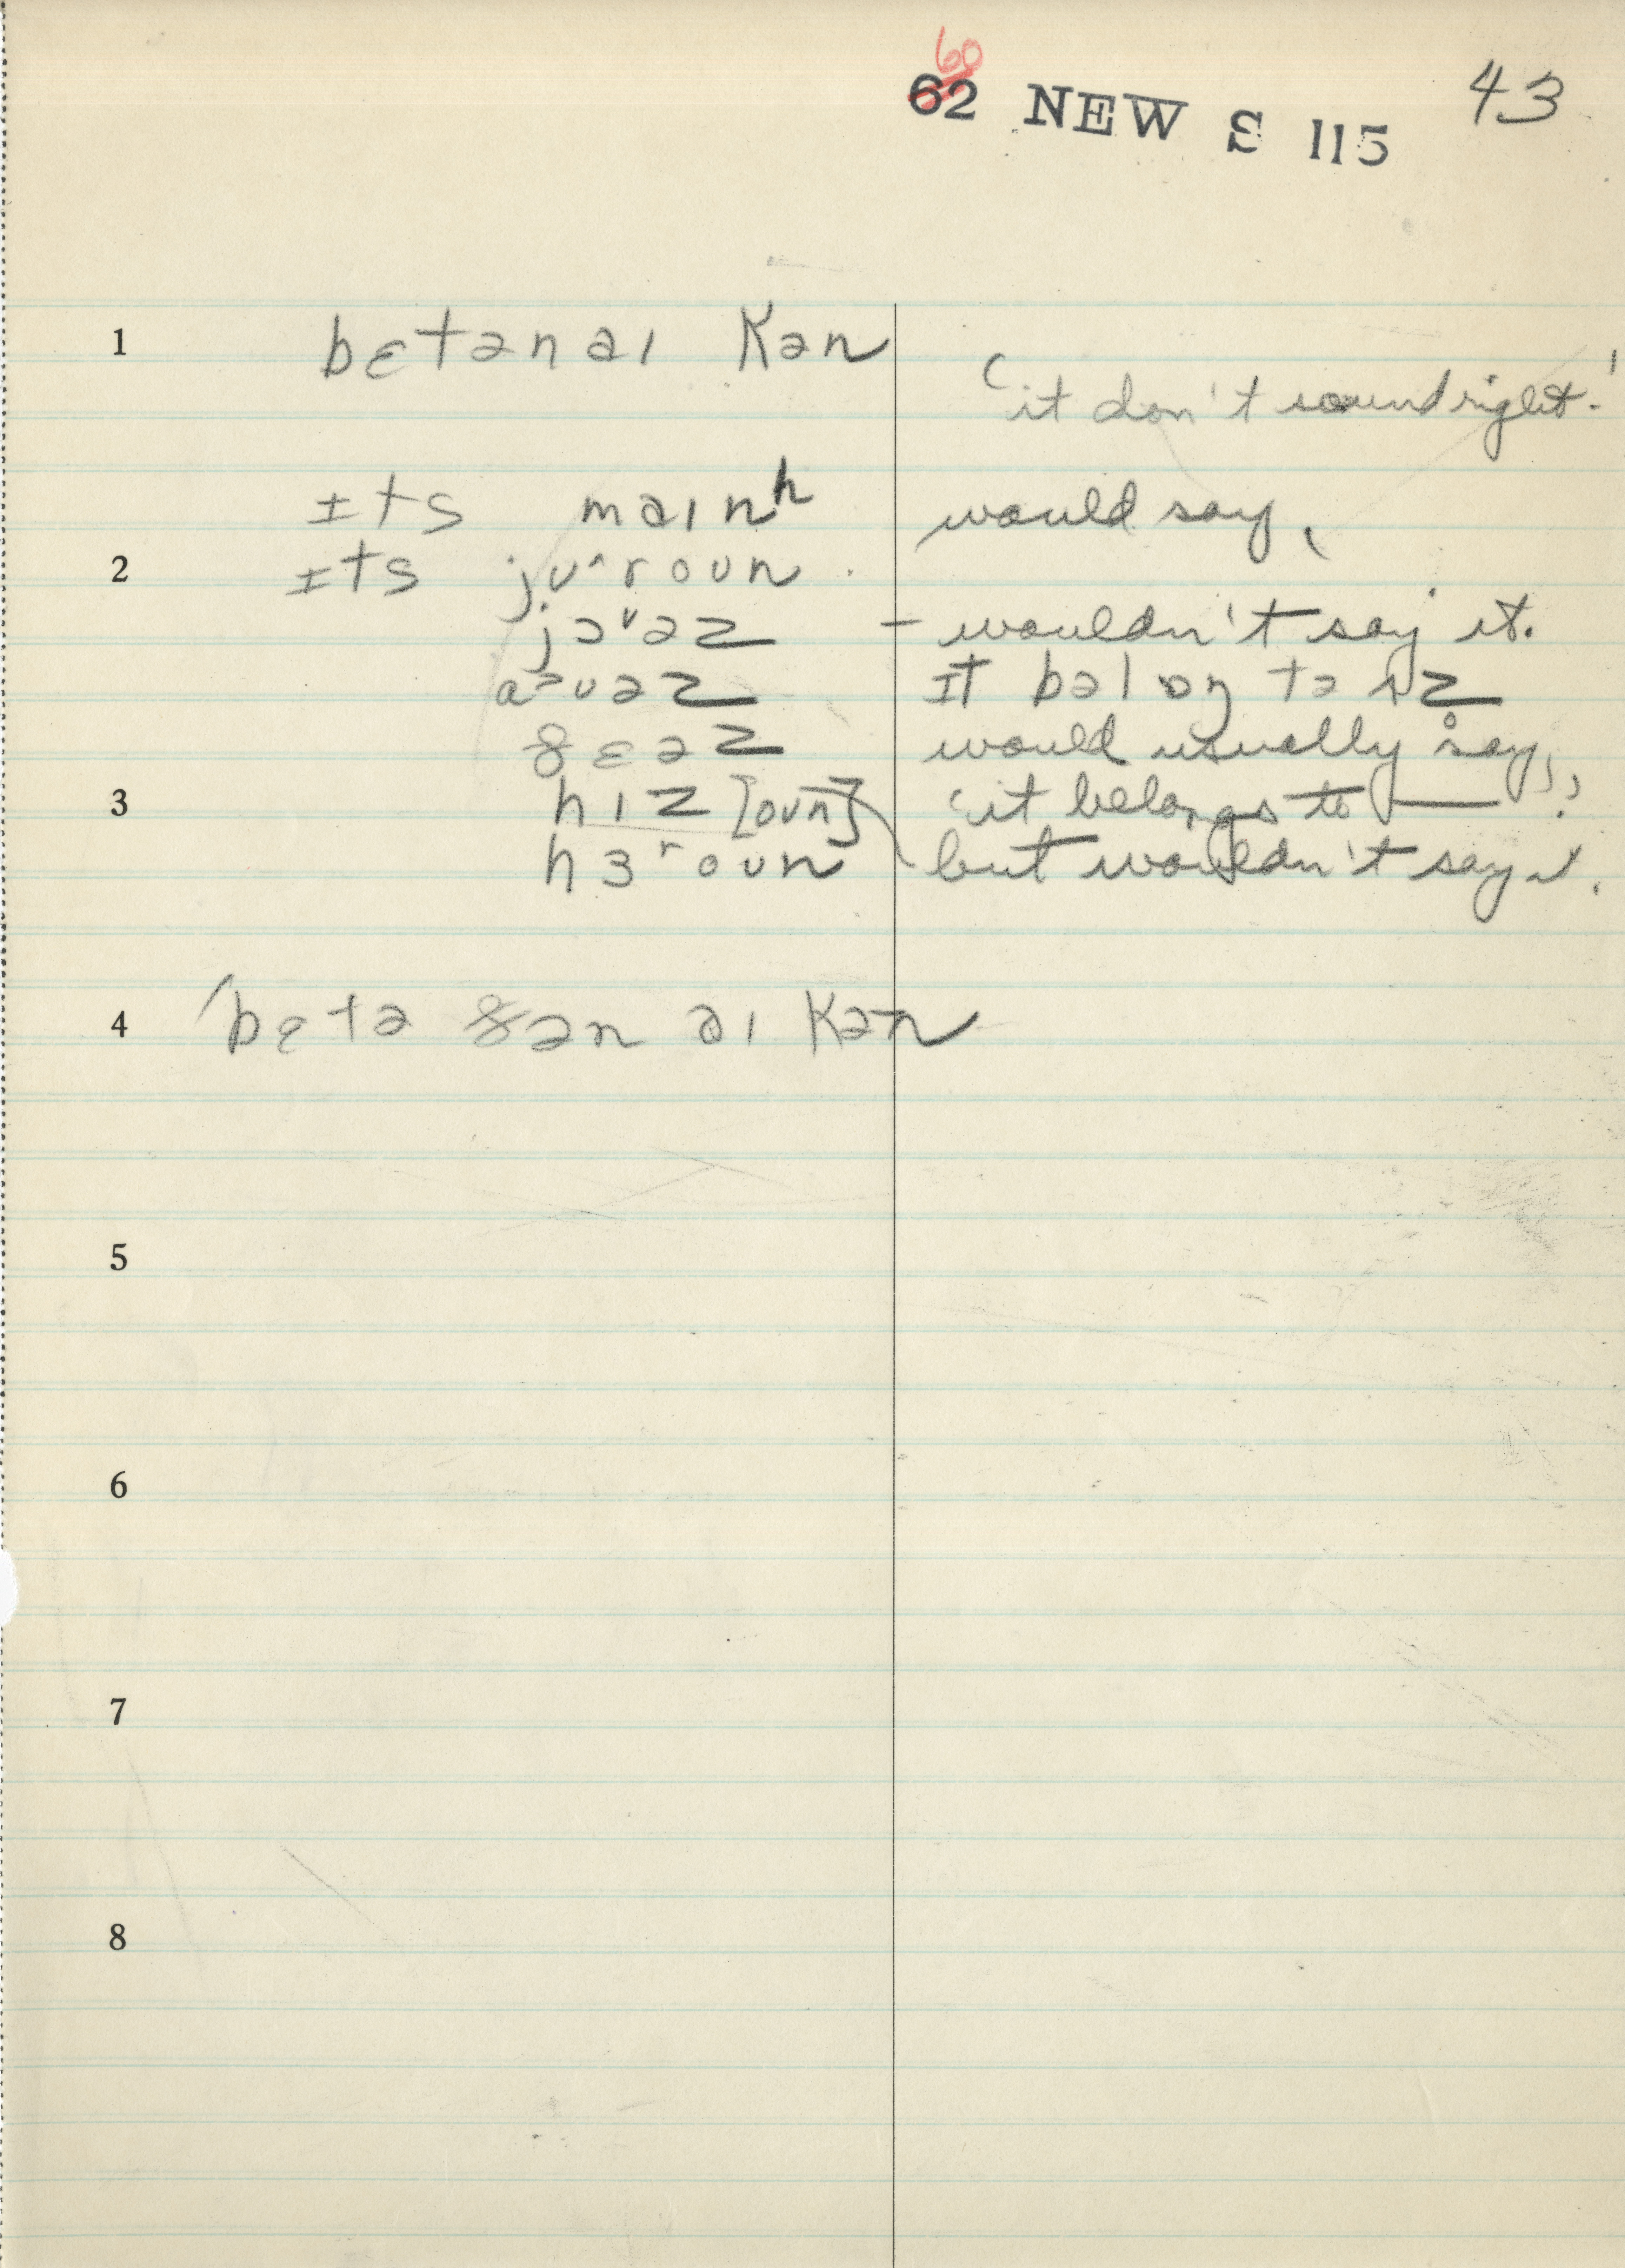 60
62 NEW S 115 43
1 bɛtənaɪ kən
'it don't sound right.'
ɪts maɪnʰ would say,
2 ɪts jʊˆroun.
jɔᵛəz – wouldn't say it.
aᵊuəz ɪt bəlɔŋ tə ʌz
ðɛəz would usually say,
3 hɪz [oun] 'it belongs to —'.
hɜʳoun but wouldn't say it.
4 'bɛtə ðən aɪ kən
5
6
7
8